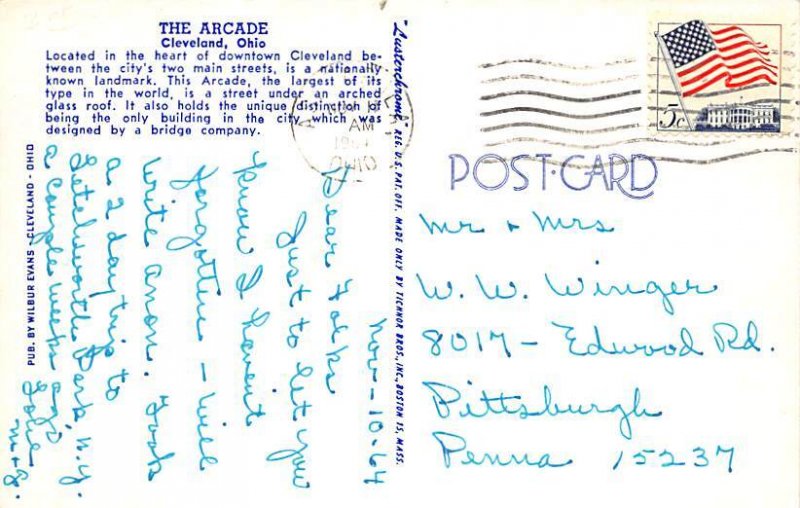 THE ARCADE
Cleveland, Ohio
Located in the heart of downtown Cleveland be-
tween the city's two main streets, is a nationally
known landmark. This Arcade, the largest of its
type in the world, is a street under an arched
glass roof. It also holds the unique distinction of
being the only building in the city which was
designed by a bridge company.
PUB. BY WILBUR EVANS - CLEVELAND - OHIO
"Lusterchrome" REG. U.S. PAT. OFF. MADE ONLY BY TICHNOR BROS., INC., BOSTON 15, MASS.
AM
OHIO
5c
POST CARD
Nov-10-64
Dear Folks
Just to let you
know I havent
forgotten - Will
write anon. Took
a 2 day trip to
Letchworth Park N.Y.
a couple weeks ago
Love
Mr & Mrs
W. W. Winger
8017 - Edwood Rd.
Pittsburgh
Penna 15237